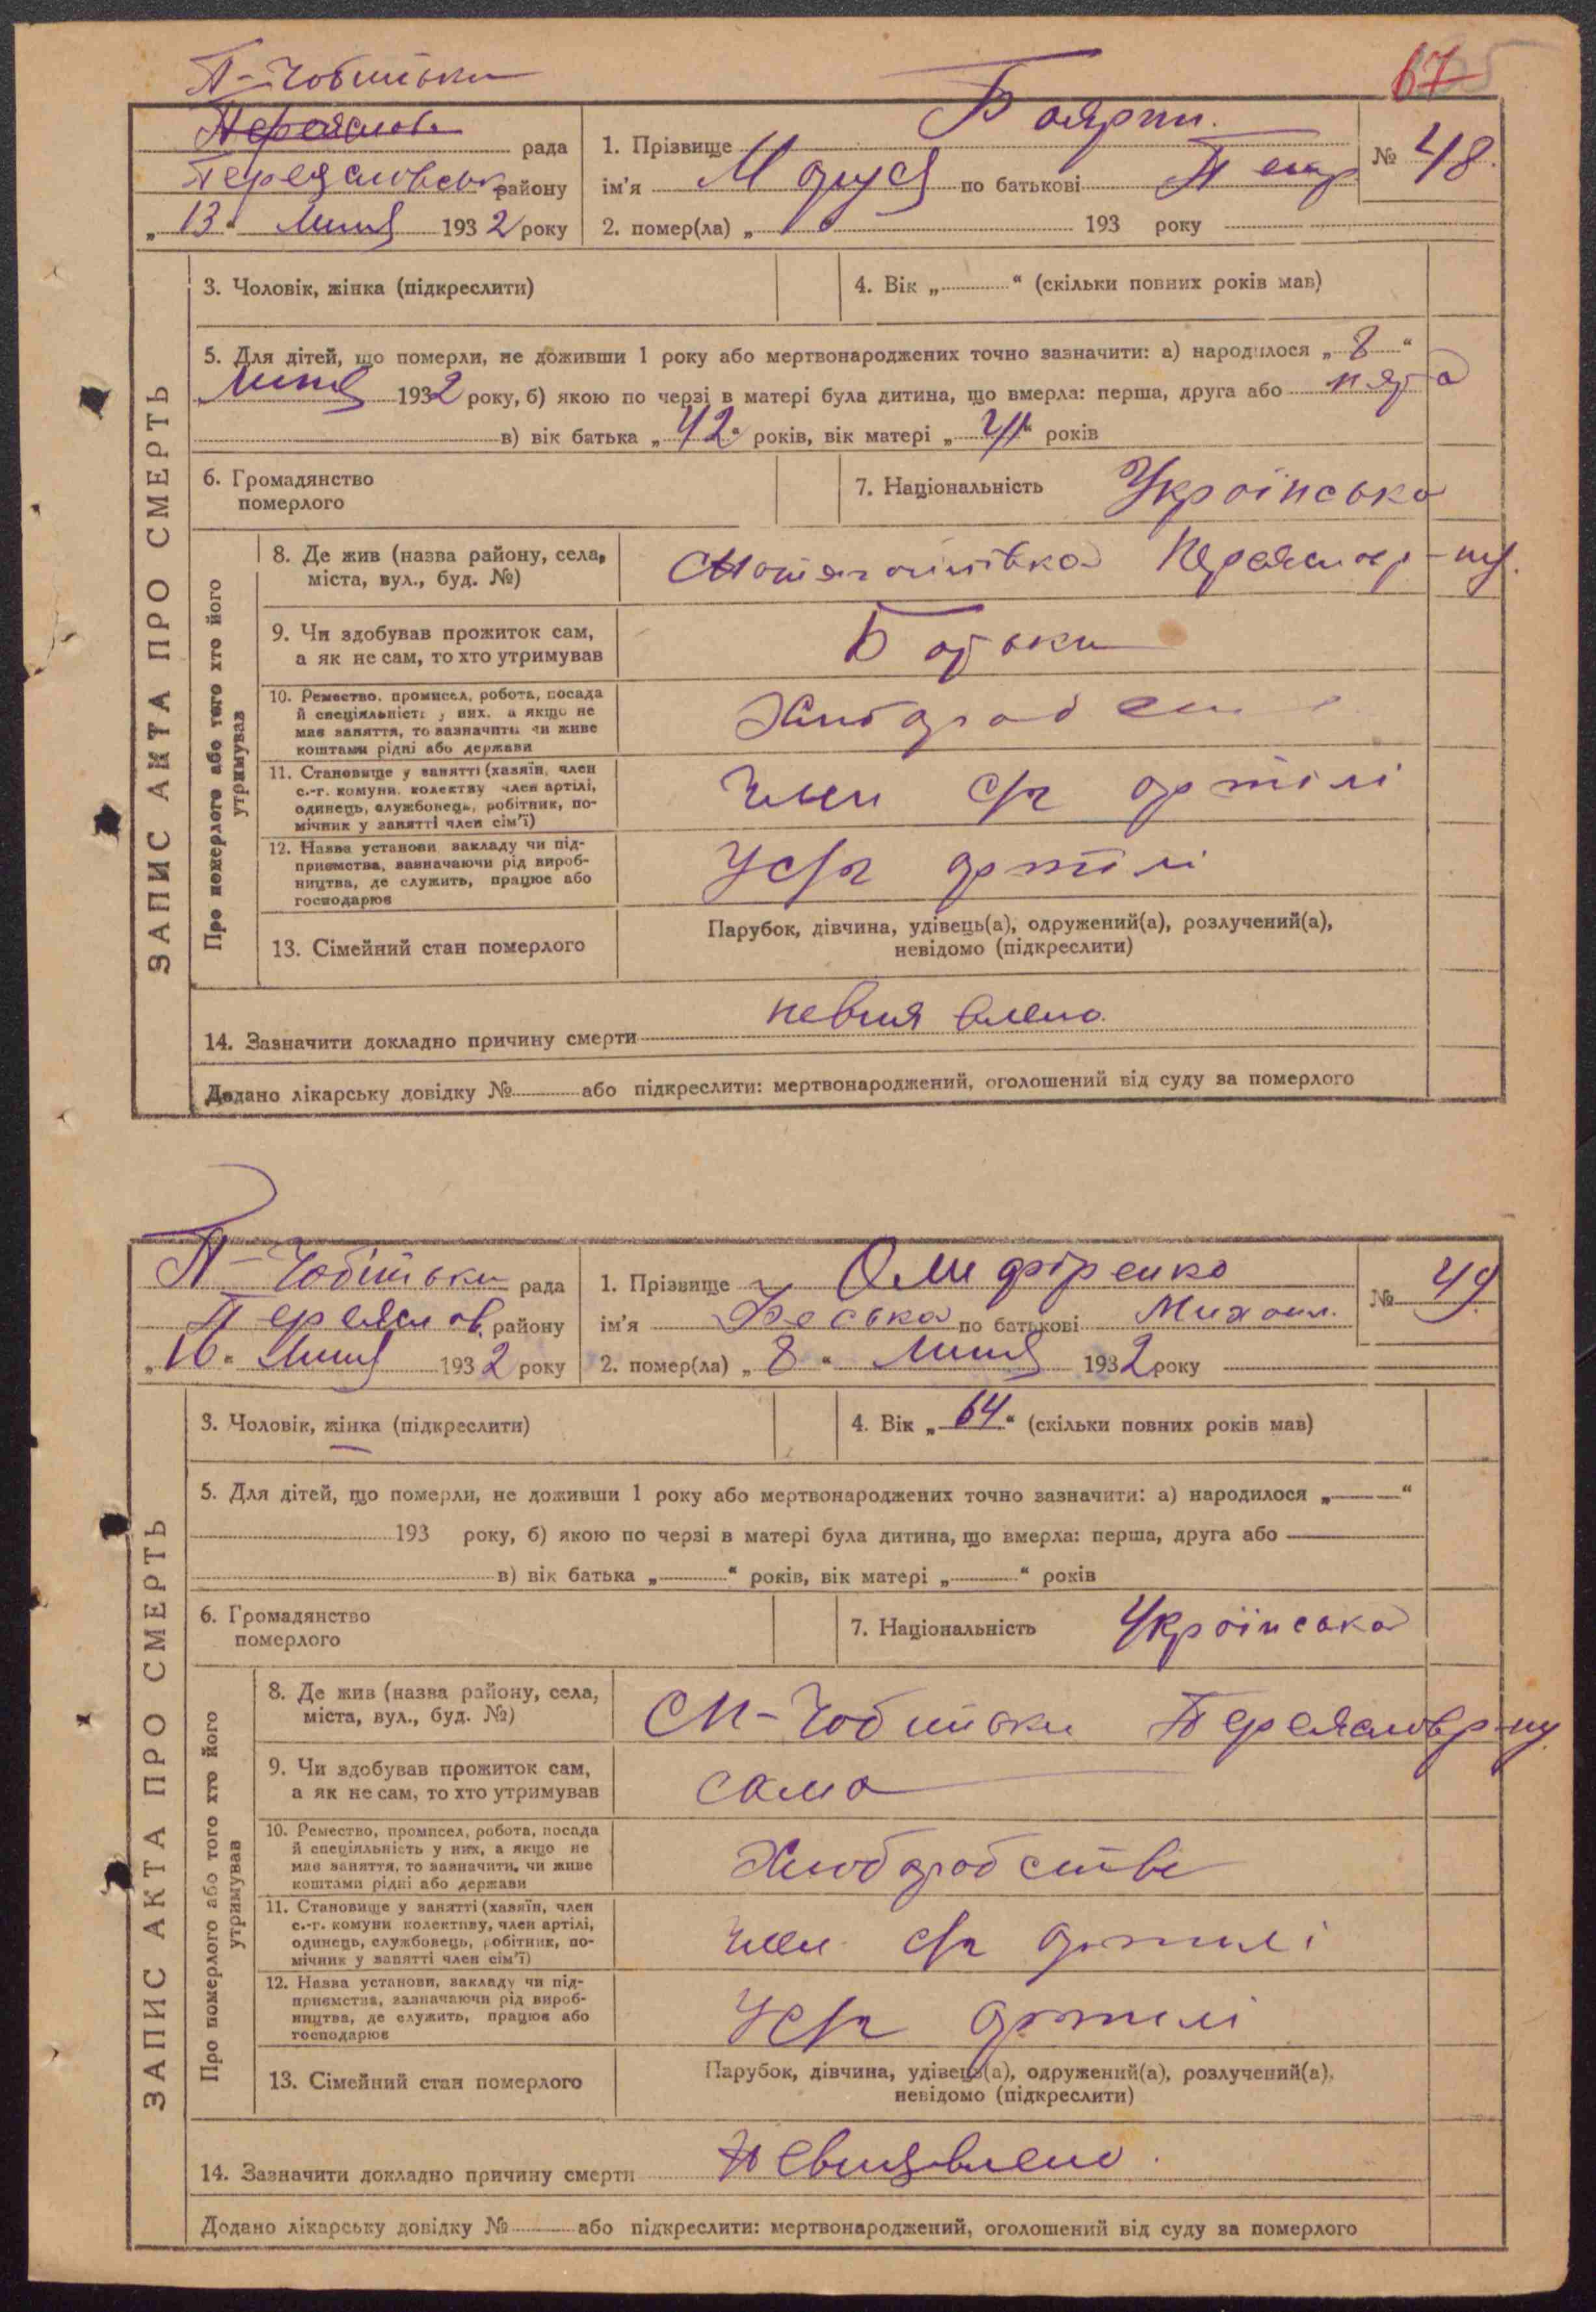 П-Чобітьки
67
Переяслов
рада
Переяславськ району
„13“ Липня 1932 року
1. Прізвище Боярин.
ім'я Маруся по батькові Петр
№ 48.
2. помер(ла) „ “ 193 року
ЗАПИС АКТА ПРО СМЕРТЬ
3. Чоловік, жінка (підкреслити)
4. Вік „ “ (скільки повних років мав)
5. Для дітей, що померли, не доживши 1 року або мертвонароджених точно зазначити: а) народилося „8“
Липня 1932 року, б) якою по черзі в матері була дитина, що вмерла: перша, друга або пята
в) вік батька „42“ років, вік матері „41“ років
6. Громадянство
померлого
7. Національність Українська
Про померлого або того хто його
утримував
8. Де жив (назва району, села,
міста, вул., буд. №)
Переяслов р-ну.
9. Чи здобував прожиток сам,
а як не сам, то хто утримував
Батьки
10. Ремество, промисел, робота, посада
й спеціяльність у них, а якщо не
мав заняття, то зазначити чи живе
коштами рідні або держави
11. Становище у занятті (хазяїн, член
с.-г. комуни, колективу член артілі,
одинець, службовець, робітник, по-
мічник у занятті член сім'ї)
Член с/г артілі
12. Назва установи закладу чи під-
приємства, зазначаючи рід вироб-
ництва, де служить, працює або
господарює
У с/г артілі
13. Сімейний стан померлого
Парубок, дівчина, удівець(а), одружений(а), розлучений(а),
невідомо (підкреслити)
14. Зазначити докладно причину смерти невиявлено.
Додано лікарську довідку № або підкреслити: мертвонароджений, оголошений від суду за померлого
П-Чобітьки рада
Переяслов. району
„16“ Липня 1932 року
1. Прізвище Олифіренко
ім'я Феська по батькові Михайл.
№ 49.
2. помер(ла) „8“ Липня 1932 року
ЗАПИС АКТА ПРО СМЕРТЬ
3. Чоловік, жінка (підкреслити)
4. Вік „64“ (скільки повних років мав)
5. Для дітей, що померли, не доживши 1 року або мертвонароджених точно зазначити: а) народилося „ “
193 року, б) якою по черзі в матері була дитина, що вмерла: перша, друга або
в) вік батька „ “ років, вік матері „ “ років
6. Громадянство
померлого
7. Національність Українська
Про померлого або того хто його
утримував
8. Де жив (назва району, села,
міста, вул., буд. №)
Чобітьки Переяслов р-ну.
9. Чи здобував прожиток сам,
а як не сам, то хто утримував
сама
10. Ремество, промисел, робота, посада
й спеціяльність у них, а якщо не
мав заняття, то зазначити, чи живе
коштами рідні або держави
Хлиборобстві
11. Становище у занятті (хазяїн, член
с.-г. комуни колективу, член артілі,
одинець, службовець, робітник, по-
мічник у занятті член сім'ї)
Член с/г артилі
12. Назва установи, закладу чи під-
приємства, зазначаючи рід вироб-
ництва, де служить, працює або
господарює
У с/г артилі
13. Сімейний стан померлого
Парубок, дівчина, удівець(а), одружений(а), розлучений(а),
невідомо (підкреслити)
14. Зазначити докладно причину смерти Невиявлено.
Додано лікарську довідку № або підкреслити: мертвонароджений, оголошений від суду за померлого